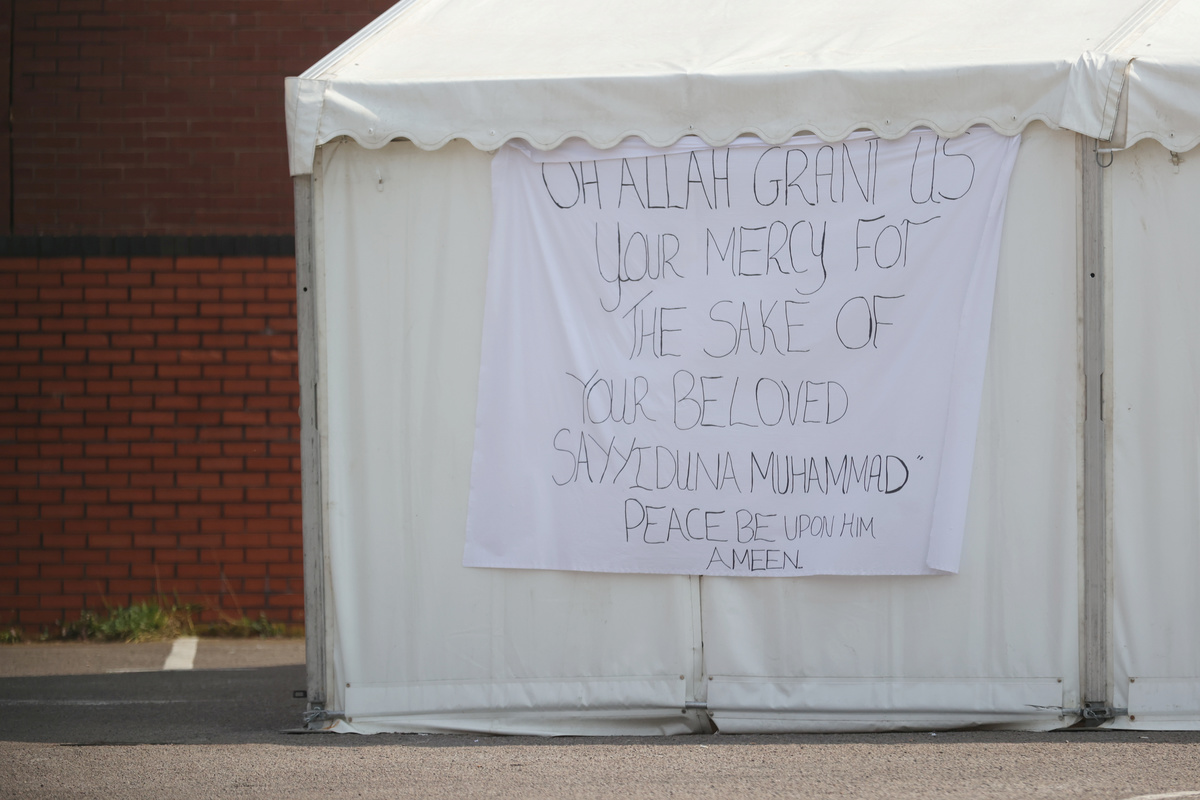 OH ALLAH GRANT US
YOUR MERCY FOr
THE SAKE OF
YOUR BELOVED
SAYYIDUNA MUHAMMAD"
PEACE BE UPON HIM
AMEEN.